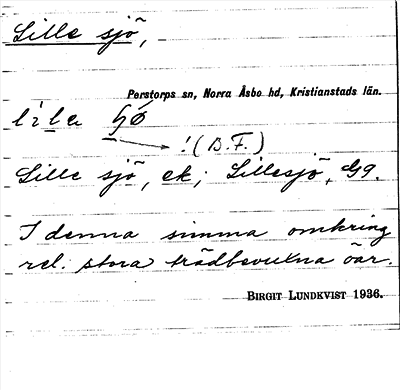 Lille sjö,
Perstorps sn, Norra Åsbo hd, Kristianstads län.
lila
! (B.F.)
Lille sjö, ek; Lillesjö, G9.
I denna simma omkring
rel. stora trädbevuxna öar.
BIRGIT LUNDKVIST 1936.